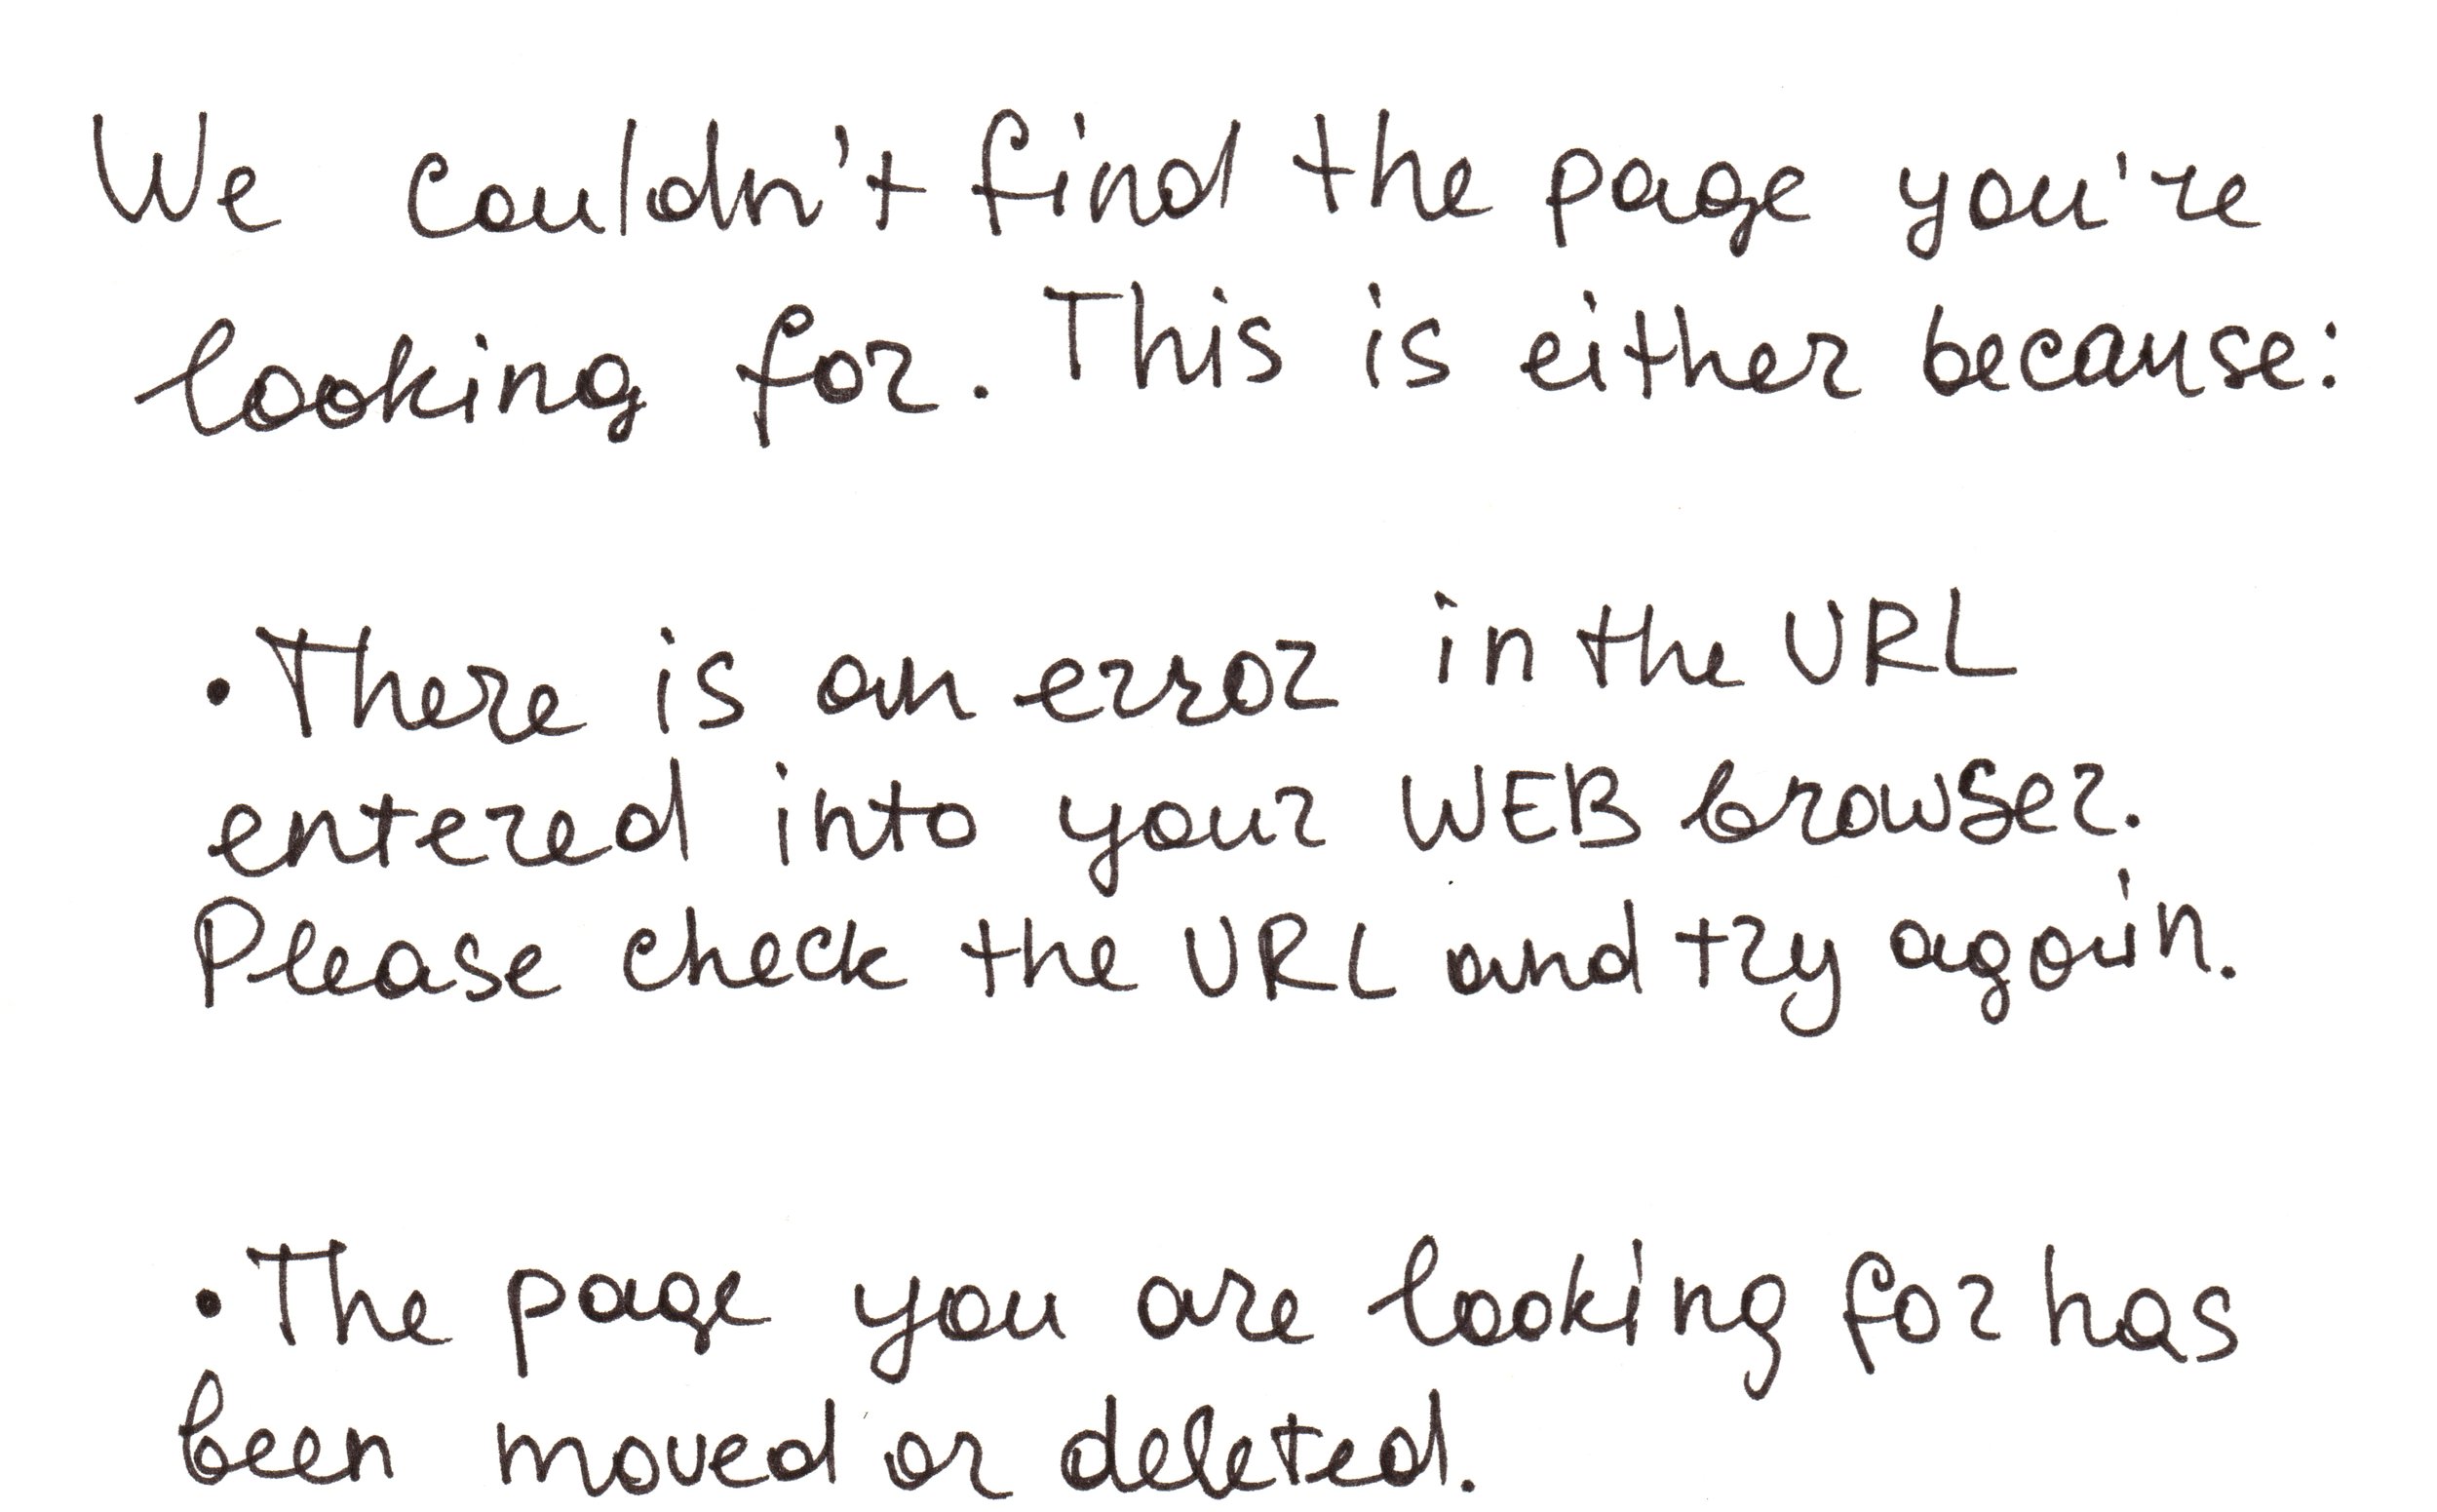 We couldn't find the page you're
looking for. This is either because:
• There is an error in the URL
entered into your WEB browser.
Please check the URL and try again.
• The page you are looking for has
been moved or deleted.